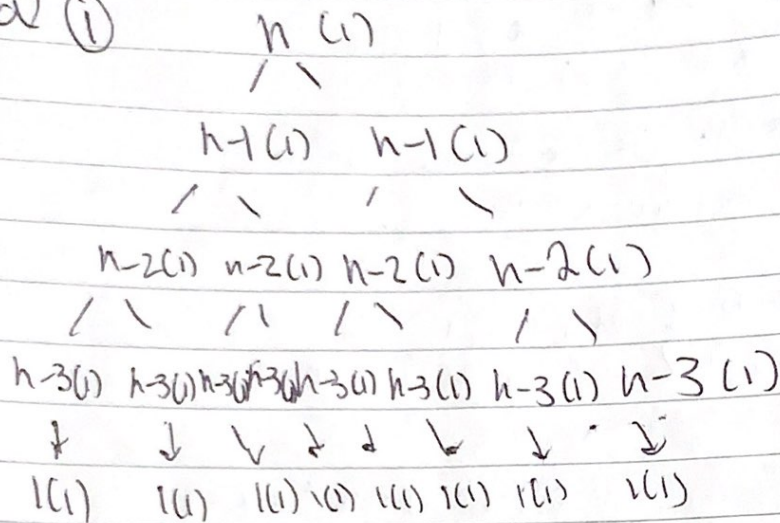 ①
n (1)
n-1(1) n-1(1)
n-2(1) n-2(1) n-2(1) n-2(1)
n-3(1) n-3(1) n-3(1) n-3(1) n-3(1) n-3(1) n-3(1) n-3(1)
1(1) 1(1) 1(1) 1(1) 1(1) 1(1) 1(1) 1(1)